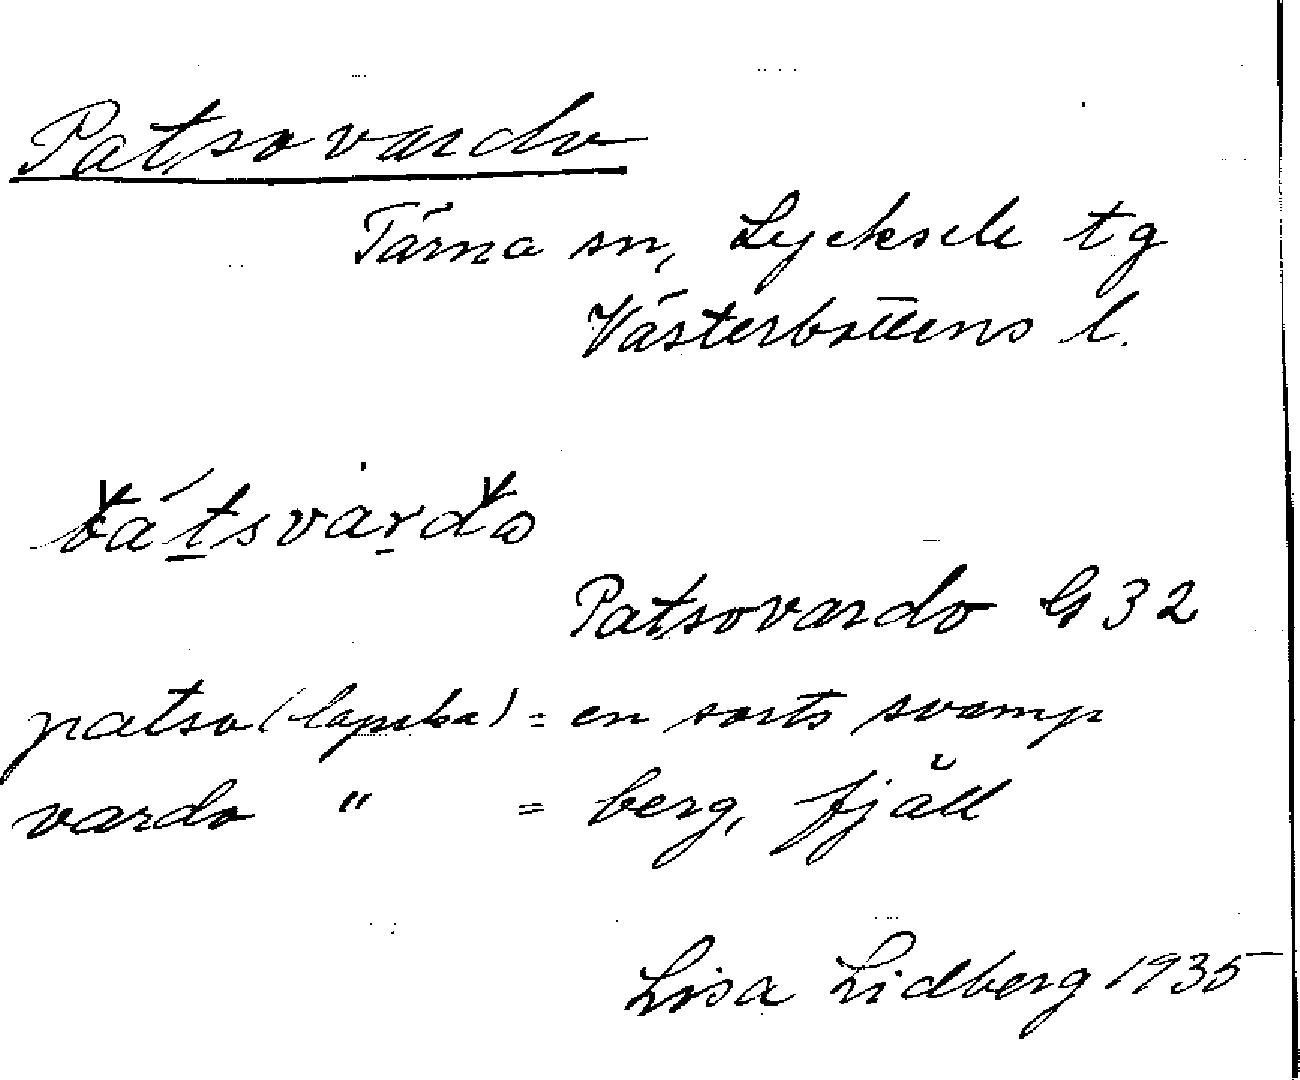 Patsovardo
Tärna sn, Lycksele tg
Västerbottens l.
Patsovardo G 32
patso (lapska) = en sorts svamp
vardo " = berg, fjäll
Lisa Lidberg 1935